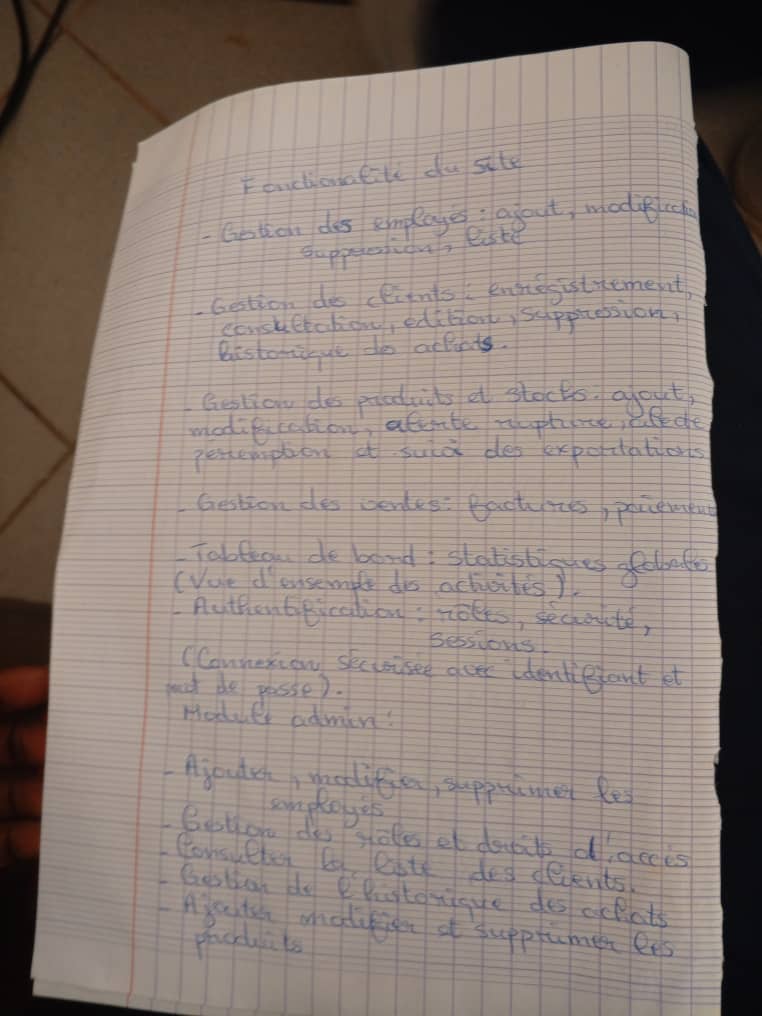 Fonctionalité du site
- Gestion des employés : ajout, modification
suppression, liste
- Gestion des clients : enrégistrement,
consultation, edition, suppression,
historique des achats.
- Gestion des produits et stocks. ajout,
modification, alerte rupture,
peremption et suivi des exportations
- Gestion des ventes : factures, paiement
- Tableau de bord : statistiques globales
(Vue d'ensemple des activités).
- Authentification : rôles, sécurité,
sessions.
(Connexion sécurisée avec identifiant et
mot de passe).
Module admin :
- Ajouter, modifier, supprimer les
employés
- Gestion des rôles et droits d'accès
- Consulter la liste des clients.
- Gestion de l'historique des achats
- Ajouter modifier et supprimer les
produits